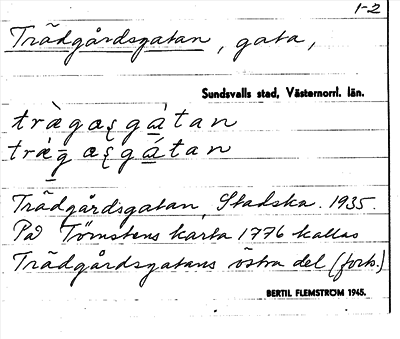 1-2
Trädgårdsgatan, gata,
Sundsvalls stad, Västernorrl. län.
tràgæʂgàtan
tràgæʂgátan
Trädgårdsgatan, Stadska. 1935.
På Törnstens karta 1776 kallas
Trädgårdsgatans östra del (forts.)
BERTIL FLEMSTRÖM 1945.